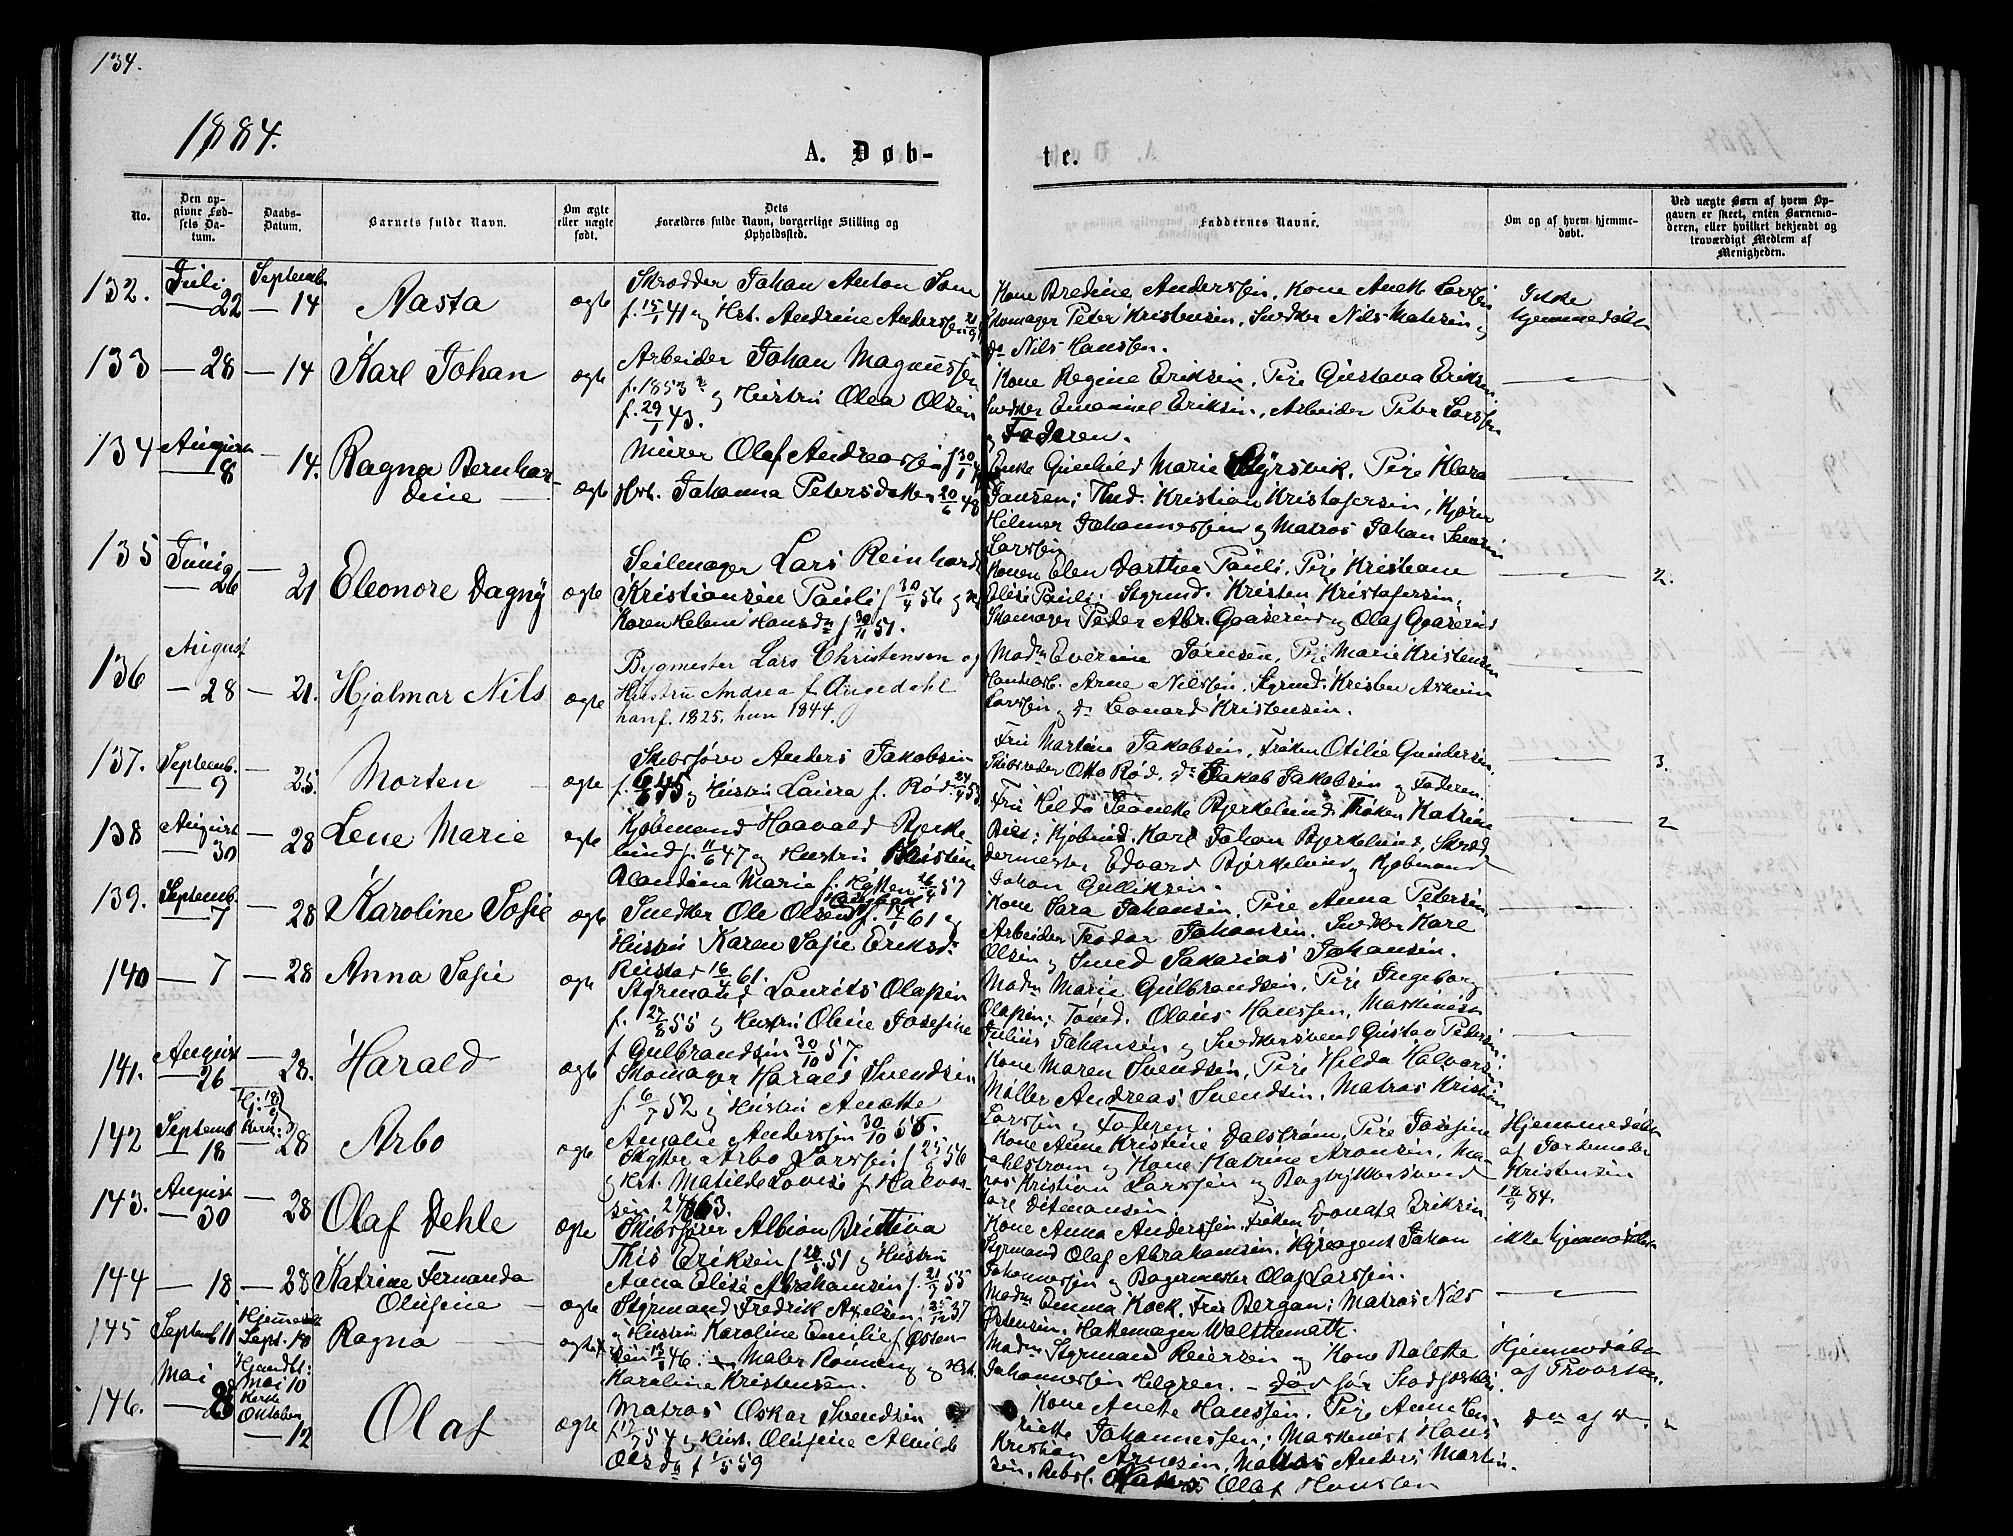 134.
1884.
A. Døb-
te.
No.
Den op-
givne Fød-
sels Da-
tum.
Daabs-
Datum.
Barnets fulde Navn.
Om ægte
eller uægte
født.
Dets
Forældres fulde Navn, borgerlige Stilling og
Opholdssted.
Faddernes Navne.
Om og af hvem hjemme-
døbt.
Ved uægte Børn af hvem Op-
gaven er skeet, enten Barnemo-
deren, eller hvilket bekjendt og
troværdigt Medlem af
Menigheden.
132. Juli 22 Septemb. 14 Aasta ægte
Skrædder Johan Anton
f. 15/1 41 og Hst. Andrine Anderssen
Kone Bredine Anderssen, Kone Anette Larssen
Skomager Peter Kristensen, Snedker Nils Madsen og
do Nils Hanssen.
Ikke
hjemmedøbt
133 — 28 — 14 Karl Johan ægte
Arbeider Johan Magnussen
f. 1853 og Hustru Olea Olsen
f. 29/1 43.
Kone Regine Eriksen, Pige Gustava Eriksen,
Snedker Emanuel Eriksen, Arbeider Peter Larssen
og Faderen.
134 August 8 — 14. Ragna Bernhar-
dine ægte
Murer Olaf Andreassen f 30/1
Hst. Johanna Petersdatter 20/6 48
Enke Gunhild Marie Byrsvik, Pige Klara
Jansen; Kristian Kristofersen,
Hilmar Johannessen og Matros Johan
Larssen
135 Juni 26 — 21 Eleonore Dagny ægte
Seilmager Lars Reinhardt
Kristiansen Pauli f 30/4 56 og
Karen Helene Hansdr f 30/11 51.
Konen Elen Dorthea Pauli, Pige Kristiane
Elise Pauli, Styrmd. Kristen Kristofersen,
Skomager Peder Abr. Gaaserud og Olaf Gaaserud
2.
136 August — 28 — 21. Hjalmar Nils ægte
Bygmester Lars Christensen og
Hustru Andrea f Angedahl
han f. 1825, hun 1844.
Madm Everine Jensen, Pige Marie Kristensen
Arne Nilssen, Styrmd. Kristen
Larssen og do Leonard Kristensen.
137. Septemb. 9 — 25. Morten ægte
Skibsfører Anders Jakobsen
f. 6/6 45 og Hustru Laura f. Rød 24/4 53
Fru Martine Jakobsen, Frøken Otilie Gundersen,
Skibsreder Otto Rød, do Jakob Jakobsen og Faderen.
3.
138 August 30 — 28 Lene Marie ægte
Kjøbmand Haavald Bjerke-
lund f. 11/6 47 og Hustru Kristine
Alandine Marie f. Hytten 26/4 57
Fru Hilda Jeanette Bjerkelund, Frøken Katrine
Kjøbmd. Karl Johan Bjerkelund, Skræd-
dermester Edvard Bjerkelund, Kjøbmand
Johan Gulliksen.
2
139. Septemb. 7 — 28 Karoline Sofie ægte
Snedker Ole Olsen f. 14/1 61 og
Hustru Karen Sofie Eriksdr
Rustad 16/4 61.
Kone Sara Johansen, Pige Anna Petersen,
Arbeider Teodor Johansen, Snedker Karl
Olsen og Smed Sakarias Johansen.
140 — 7 — 28 Anna Sofie ægte
Styrmand Laurits Olafsen
f. 27/8 55 og Hustru Oline Josefine
f Gulbrandsen 30/10 57.
Madm Marie Gulbrandsen, Pige Ingeborg
Olafsen; Tømd. Olaus Hanssen, Maskinist
Julius Johansen og Snedkersvend Gustav Petersen.
141. August 26 — 28. Harald ægte
Skomager Harald Svendsen
f. 6/7 52 og Hustru Anette
Amalie Anderssen 30/10 58.
Kone Maren Svendsen, Pige Hilda Halvorsen
Møller Andreas Svendsen, Matros Kristian
Larssen og Faderen.
142 Septemb 18 Hj: 18/9 Kirk: — 28 Arbo ægte
Skytter Arbo Larssen f 25/9 56
og Hst. Matilde Lovise f Halvor-
sen. 24/6 63.
Kone Anne Kristine Dalstrøm, Pige Josefine
Dahlstrøm og Kone Katrine Aronsen, Ma-
tros Kristian Larssen og Bogtrykkersvend
Karl Ditmansen.
Hjemmedøbt
af Jordemoder
Kristensen
18/9 84.
143. August 30 — 28 Olaf Dehle ægte
Skibsfører Albion Brittina
This Eriksen f 22/1 51 og Hustru
Anna Elise Abrahamsen f. 21/9 55
Kone Anna Anderssen, Frøken Donata Eriksen
Styrmand Olaf Abrahamsen, Hyreagent Johan
Johannessen og Bagermester Olaf Larssen.
ikke hjemmedøbt
144 — 18 — 28 Katrine Fernanda
Olufine ægte
Styrmand Fredrik Axelsen 25/12 37
og Hustru Karoline Emilie f. Østen-
sen 13/8 46.
Madm Emma Kock, Fru Bergan; Matros Nils
Østensen, Hattemager Walthematt.
145 Septemb 11 Hjemme
Sept. 18 Ragna ægte
Maler Rønning og Hst.
Karoline Kristensen.
Madm Styrmand Reiersen og Kone
Johannessen Helgren. — død før Stadfæstelsen
Hjemmedøbt
af Provsten.
146. Mai 8 Hjemdbt:
Mai 10
Kirke
Oktober
— 12 Olaf ægte
Matros Oskar Svendsen
f 17/7 54 og Hust. Olufine Alvilde
Olsdr f 1/5 59
Kone Anette Hanssen, Pige Anne Hen-
riette Johannessen; Maskinist Hans
Kristian Arnesen, Matros Anders Martin-
sen, Olaf Hanssen
do af do